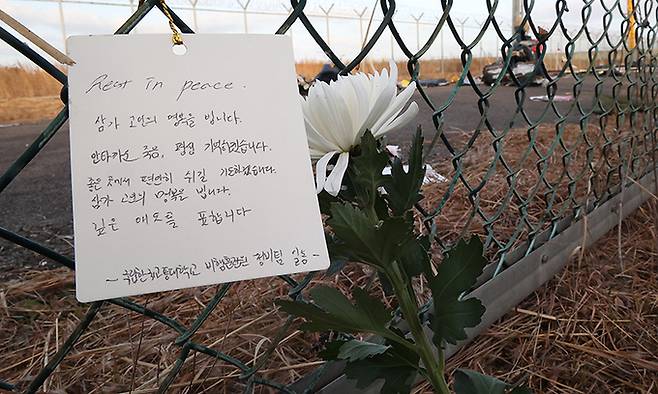 Rest in peace.
삼가 고인의 명복을 빕니다.
안타까운 죽음, 평생 기억하겠습니다.
좋은 곳에서 편안히 쉬길 기도하겠습니다.
삼가 고인의 명복을 빕니다.
깊은 애도를 표합니다
- 국립한국교통대학교 비행훈련원 정비팀 일동 -